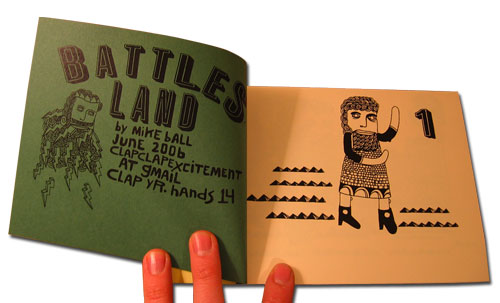 BATTLES
LAND
by MIKE BALL
JUNE 2006
CLAPCLAPEXCITEMENT
AT GMAIL
CLAP YR. hANDS 14
1